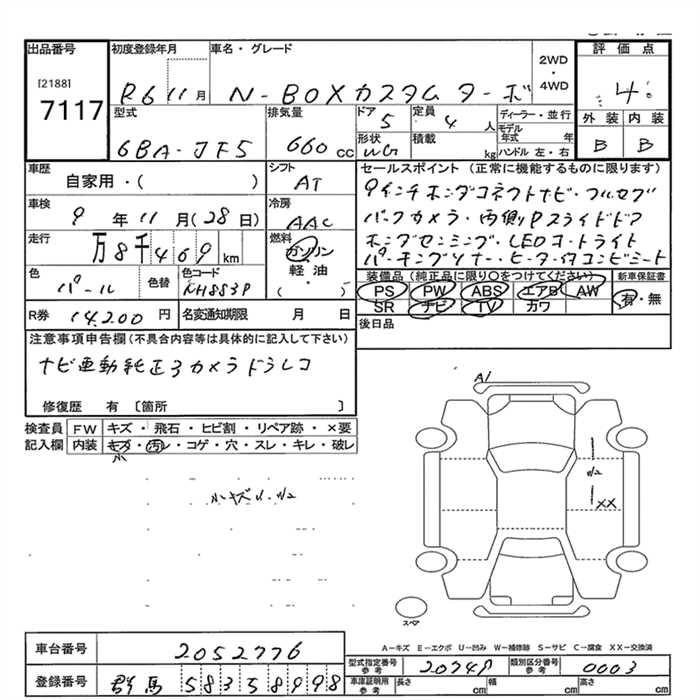 出品番号 初度登録年月 車名・グレード 2WD ・ 4WD 評価点
[2188]
7117 R6 11月 N-BOXカスタム ターボ 4
型式 排気量 ドア 定員 ディーラー・並行 外装 内装
6BA-JF5 660cc 5 4人 モデル年式 年 B B
形状 積載 ハンドル 左・右
WG kg
車歴 シフト セールスポイント (正常に機能するものに限ります)
自家用・( ) AT 9インチホンダコネクトナビ・フルセグ
車検 冷房 バックカメラ・両側Pスライドドア
9年11月(28日) AAC ホンダセンシング・LEDオートライト
走行 燃料 パーキングソナー・ヒーター付コンビシート
万8千469km ガソリン 軽油 ( )
色 色替 色コード 装備品 (純正品に限り○をつけてください) 新車保証書
パール NH883P PS PW ABS エアB AW 有・無
SR ナビ TV カワ
R券 14,200円 名変通知期限 月 日 後日品
注意事項申告欄 (不具合内容等は具体的に記入して下さい)
ナビ連動純正3カメラドラレコ
修復歴 有 〔箇所 〕
検査員 FW キズ・飛石・ヒビ割・リペア跡・×要
記入欄 内装 キズ・汚レ・コゲ・穴・スレ・キレ・破レ
小
A1
小キズ
XX
スペア
A―キズ E―エクボ U―凹み W―補修跡 S―サビ C―腐食 XX―交換済
車台番号 2052776 型式指定番号 参考 20748 類別区分番号 参考 0003
登録番号 群馬 583 5 8998 車庫証明用 参考 長さ cm 幅 cm 高さ cm